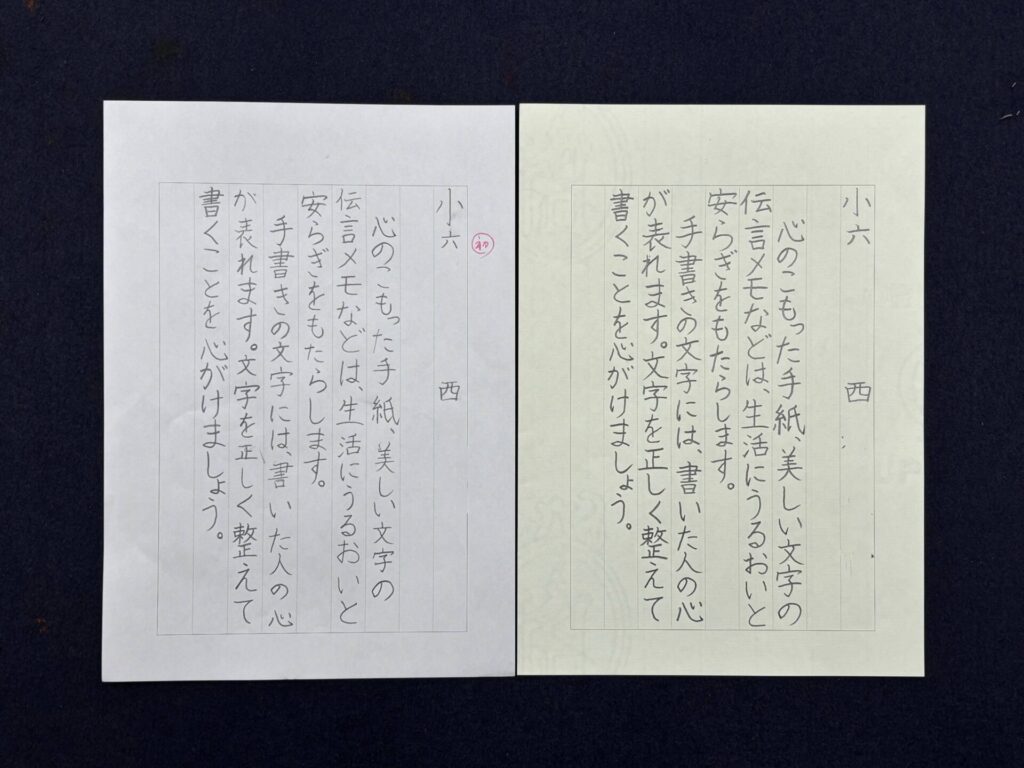 小六 西
心のこもった手紙、美しい文字の
伝言メモなどは、生活にうるおいと
安らぎをもたらします。
手書きの文字には、書いた人の心
が表れます。文字を正しく整えて
書くことを心がけましょう。
初
小六 西
心のこもった手紙、美しい文字の
伝言メモなどは、生活にうるおいと
安らぎをもたらします。
手書きの文字には、書いた人の心
が表れます。文字を正しく整えて
書くことを心がけましょう。